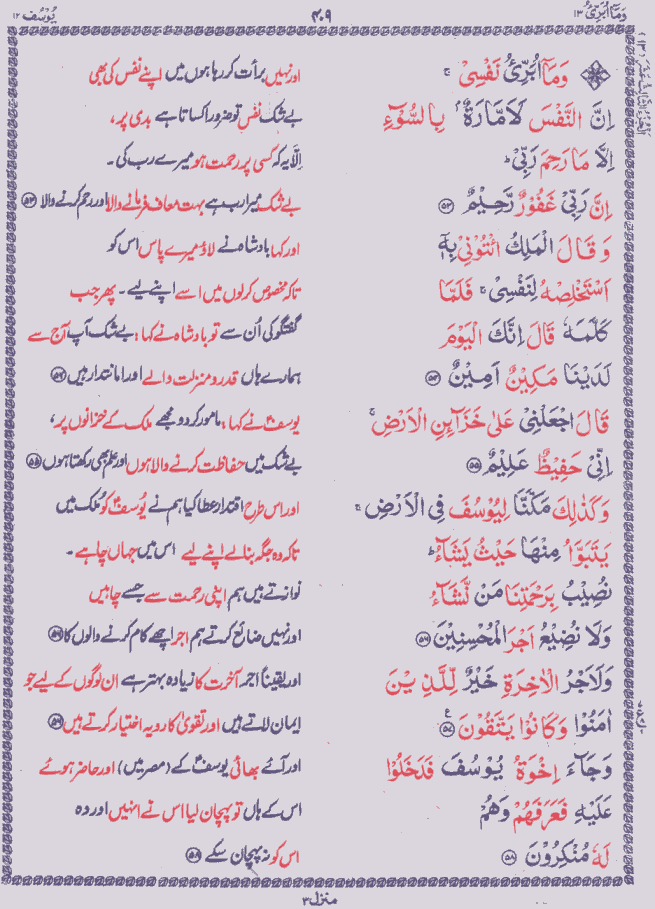 وَمَآ اُبَرِّئُ ١٣
٤٠٩
يُوْسُف ١٢
وَمَآ اُبَرِّئُ نَفْسِیْ ۚ
اور نہیں برأت کر رہا ہوں میں اپنے نفس کی بھی
اِنَّ النَّفْسَ لَاَمَّارَةٌۢ بِالسُّوْٓءِ
بے شک نفس تو ضرور اکساتا ہے بدی پر،
اِلَّا مَا رَحِمَ رَبِّیْ ؕ
اِلّا یہ کہ کسی پر رحمت ہو میرے رب کی۔
اِنَّ رَبِّیْ غَفُوْرٌ رَّحِیْمٌ ﴿٥٣﴾
بے شک میرا رب ہے بہت معاف فرمانے والا اور رحم کرنے والا ﴿٥٣﴾
وَ قَالَ الْمَلِكُ ائْتُوْنِیْ بِهٖۤ
اور کہا بادشاہ نے لاؤ میرے پاس اس کو
اَسْتَخْلِصْهُ لِنَفْسِیْ ۚ فَلَمَّا
تاکہ مخصوص کرلوں میں اسے اپنے لیے۔ پھر جب
كَلَّمَهٗ قَالَ اِنَّكَ الْیَوْمَ
گفتگو کی اُن سے تو بادشاہ نے کہا: بے شک آپ آج سے
لَدَیْنَا مَكِیْنٌ اَمِیْنٌ ﴿٥٤﴾
ہمارے ہاں قدر و منزلت والے اور امانتدار ہیں ﴿٥٤﴾
قَالَ اجْعَلْنِیْ عَلٰی خَزَآئِنِ الْاَرْضِ ۚ
یوسفؑ نے کہا: مامور کر دو مجھے ملک کے خزانوں پر،
اِنِّیْ حَفِیْظٌ عَلِیْمٌ ﴿٥٥﴾
بے شک میں حفاظت کرنے والا ہوں اور علم بھی رکھتا ہوں ﴿٥٥﴾
وَكَذٰلِكَ مَكَّنَّا لِیُوْسُفَ فِی الْاَرْضِ ۚ
اور اس طرح اقتدار عطا کیا ہم نے یُوسفؑ کو مُلک میں
یَتَبَوَّاُ مِنْهَا حَیْثُ یَشَآءُ ؕ
تاکہ وہ جگہ بنالے اپنے لیے اس میں جہاں چاہے۔
نُصِیْبُ بِرَحْمَتِنَا مَنْ نَّشَآءُ
نوازتے ہیں ہم اپنی رحمت سے جسے چاہیں
وَلَا نُضِیْعُ اَجْرَ الْمُحْسِنِیْنَ ﴿٥٦﴾
اور نہیں ضائع کرتے ہم اجر اچھے کام کرنے والوں کا ﴿٥٦﴾
وَلَاَجْرُ الْاٰخِرَةِ خَیْرٌ لِّلَّذِیْنَ
اور یقیناً اجر آخرت کا زیادہ بہتر ہے ان لوگوں کے لیے جو
اٰمَنُوْا وَكَانُوْا یَتَّقُوْنَ ﴿٥٧﴾
ایمان لاتے ہیں اور تقویٰ کا رویہ اختیار کرتے ہیں ﴿٥٧﴾
وَجَآءَ اِخْوَةُ یُوْسُفَ فَدَخَلُوْا
اور آئے بھائی یوسفؑ کے (مصر میں) اور حاضر ہوئے
عَلَیْهِ فَعَرَفَهُمْ وَهُمْ
اس کے ہاں تو پہچان لیا اس نے انہیں اور وہ
لَهٗ مُنْكِرُوْنَ ﴿٥٨﴾
اس کو نہ پہچان سکے ﴿٥٨﴾
منزل ٣